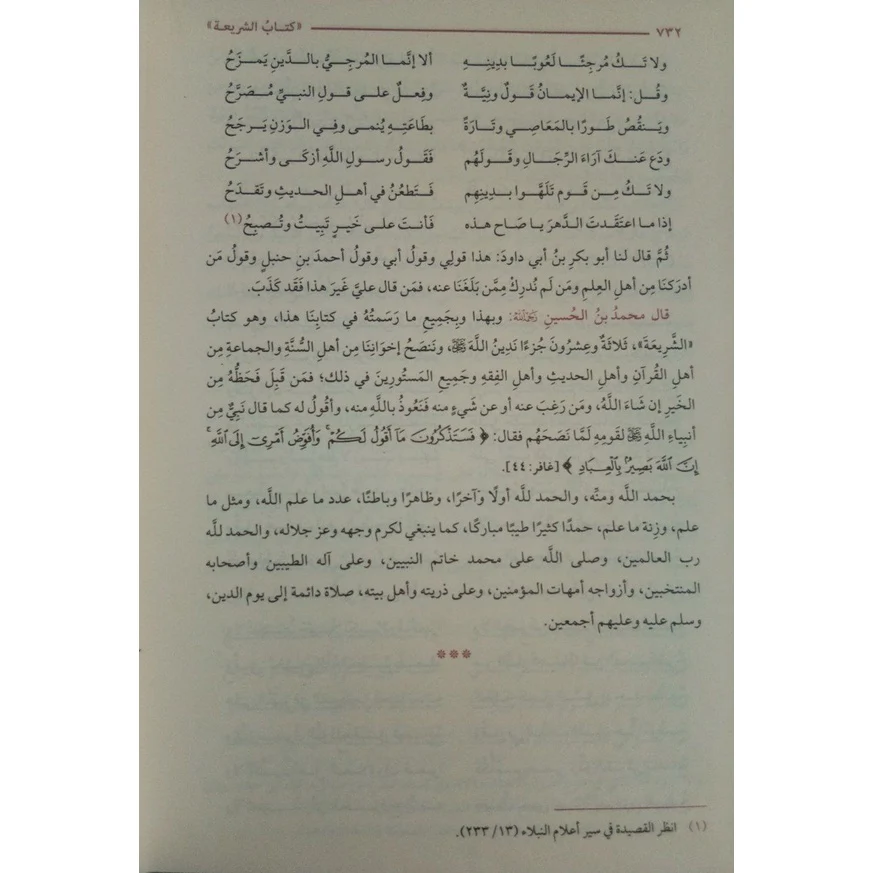 ٧٣٢ «كتابُ الشريعة»
ولا تَكُ مُرجِئًا لَعُوبًا بدِينِهِ ألا إنَّما المُرجِيُّ بالدَّينِ يَمزَحُ
وقُل: إنَّما الإيمانُ قَولٌ ونِيَّةٌ وفِعلٌ على قولِ النبيِّ مُصَرَّحُ
ويَنقُصُ طَورًا بالمَعَاصِي وتَارَةً بطَاعَتِهِ يُنمى وفي الوَزنِ يَرجَحُ
ودَع عَنكَ آرَاءَ الرِّجَالِ وقَولَهُم فَقَولُ رسولِ اللَّهِ أزكَى وأشرَحُ
ولا تَكُ مِن قَوم تَلَهَّوا بدِينِهِم فَتَطعُنُ في أهلِ الحديثِ وتَقدَحُ
إذا ما اعتَقَدتَ الدَّهرَ يا صَاح هذه فَأنتَ على خَيرٍ تَبِيتُ وتُصبِحُ(١)
ثُمَّ قال لنا أبو بكرِ بنُ أبي داودَ: هذا قولِي وقولُ أبي وقولُ أحمدَ بنِ حنبلٍ وقولُ مَن
أدرَكنَا مِن أهلِ العِلمِ ومَن لَم نُدرِكْ مِمَّن بَلَغَنَا عنه، فمَن قال عليَّ غَيرَ هذا فَقَد كَذَبَ.
قال محمدُ بنُ الحُسينِ رَحِمَهُ اللَّهُ: وبهذا وبِجَميعِ ما رَسَمتُهُ في كتابِنَا هذا، وهو كتابُ
«الشَّرِيعَة»، ثَلاثَةٌ وعِشرُونَ جُزءًا نَدِينُ اللَّهَ ﷻ، ونَنصَحُ إخوَانِنَا مِن أهلِ السُّنَّةِ والجماعةِ مِن
أهلِ القُرآنِ وأهلِ الحديثِ وأهلِ الفِقهِ وجَميعِ المَستُورِينَ في ذلك؛ فمَن قَبِلَ فَحَظُّهُ مِن
الخَيرِ إن شَاءَ اللَّهُ، ومَن رَغِبَ عنه أو عن شَيءٍ منه فَنَعُوذُ باللَّهِ منه، وأقُولُ له كما قال نَبِيٌّ مِن
أنبِياءِ اللَّهِ ﷻ لقَومِهِ لَمَّا نَصَحَهُم فقال: ﴿ فَسَتَذْكُرُونَ مَآ أَقُولُ لَكُمْ ۚ وَأُفَوِّضُ أَمْرِىٓ إِلَى ٱللَّهِ ۚ
إِنَّ ٱللَّهَ بَصِيرٌۢ بِٱلْعِبَادِ ﴾ [غافر: ٤٤].
بحمد اللَّه ومنِّه، والحمد للَّه أولًا وآخرًا، وظاهرًا وباطنًا، عدد ما علم اللَّه، ومثل ما
علم، وزِنة ما علم، حمدًا كثيرًا طيبًا مباركًا، كما ينبغي لكرم وجهه وعز جلاله، والحمد للَّه
رب العالمين، وصلى اللَّه على محمد خاتم النبيين، وعلى آله الطيبين وأصحابه
المنتخبين، وأزواجه أمهات المؤمنين، وعلى ذريته وأهل بيته، صلاة دائمة إلى يوم الدين،
وسلم عليه وعليهم أجمعين.
(١) انظر القصيدة في سير أعلام النبلاء (١٣/ ٢٣٣).